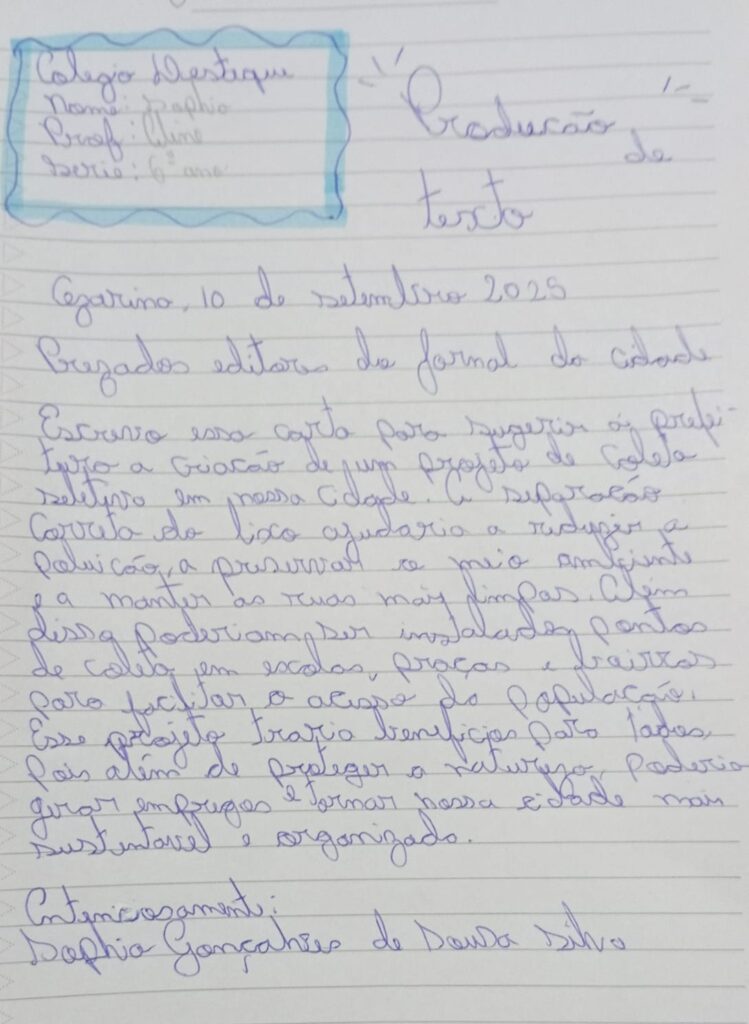 Colegio Destaque
Nome: Sophia
Prof: Aline
Serie: 6º ano
Produção
de
texto
Cezarina, 10 de setembro 2025
Prezados editores do jornal da cidade
Escrevo essa carta para sugerir à prefei-
tura a criação de um projeto de coleta
seletiva em nossa cidade. A separação
correta do lixo ajudaria a reduzir a
poluição, a preservar o meio ambiente
e a manter as ruas mais limpas. Além
disso, poderiam ser instalados pontos
de coleta em escolas, praças e bairros
para facilitar o acesso da população.
Esse projeto traria benefícios para todos,
pois além de proteger a natureza, poderia
gerar empregos e tornar nossa cidade mais
sustentavel e organizada.
Antenciosamente:
Sophia Gonçalves de Sousa Silva